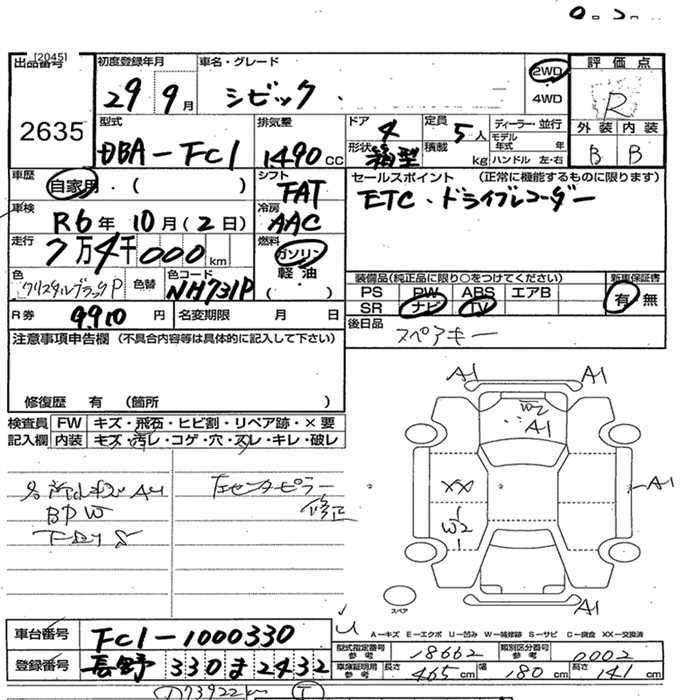 [2045]
出品番号
2635
初度登録年月
29 9月
車名・グレード
シビック
2WD
4WD
評価点
R
外装 内装
B B
型式
DBA-FC1
排気量
1490 cc
ドア
4
形状
箱型
定員
5人
積載
kg
ディーラー・並行
モデル年式 年
ハンドル 左・右
車歴
自家用・( )
シフト
FAT
セールスポイント (正常に機能するものに限ります)
ETC・ドライブレコーダー
車検
R6年 10月(2日)
冷房
AAC
走行
7万4千000km
燃料
ガソリン
軽油
( )
色
クリスタルブラックP
色替
色コード
NH731P
装備品(純正品に限り○をつけてください)
PS PW ABS エアB
SR ナビ TV
新車保証書
有 無
R券
9910円
名変期限 月 日
後日品
スペアキー
注意事項申告欄(不具合内容等は具体的に記入して下さい)
修復歴 有 (箇所 )
検査員記入欄
FW キズ・飛石・ヒビ割・リペア跡・×要
内装 キズ・汚レ・コゲ・穴・スレ・キレ・破レ
BPW
左センターピラー
修正
A1 A1
W2
A1
XX
W2
A1
A1
スペア
A-キズ E-エクボ U-凹み W-補修跡 S-サビ C-腐食 XX-交換済
車台番号
FC1-1000330
登録番号
長野 330 ま 2432
型式指定番号 参考
18662
類別区分番号 参考
0002
車庫証明用 参考
長さ 465cm 幅 180cm 高さ 141cm
73922km